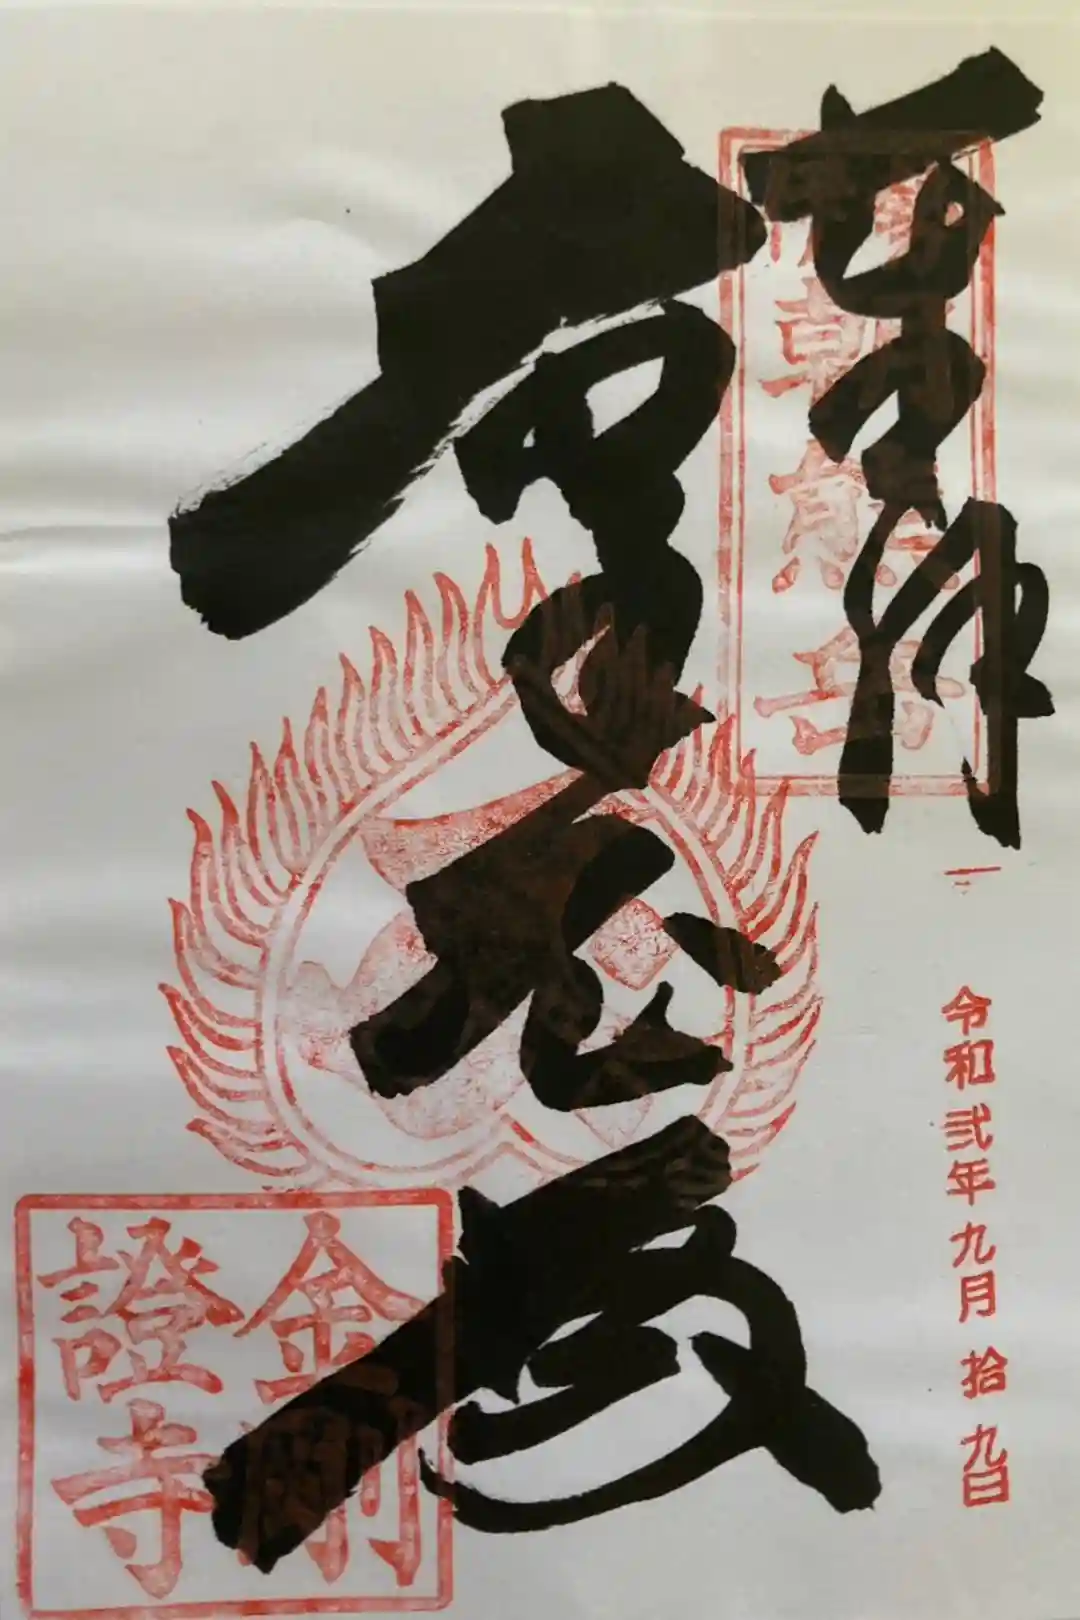 奉拝
朝熊岳
令和弐年九月拾九日
虚空蔵
金剛
證寺